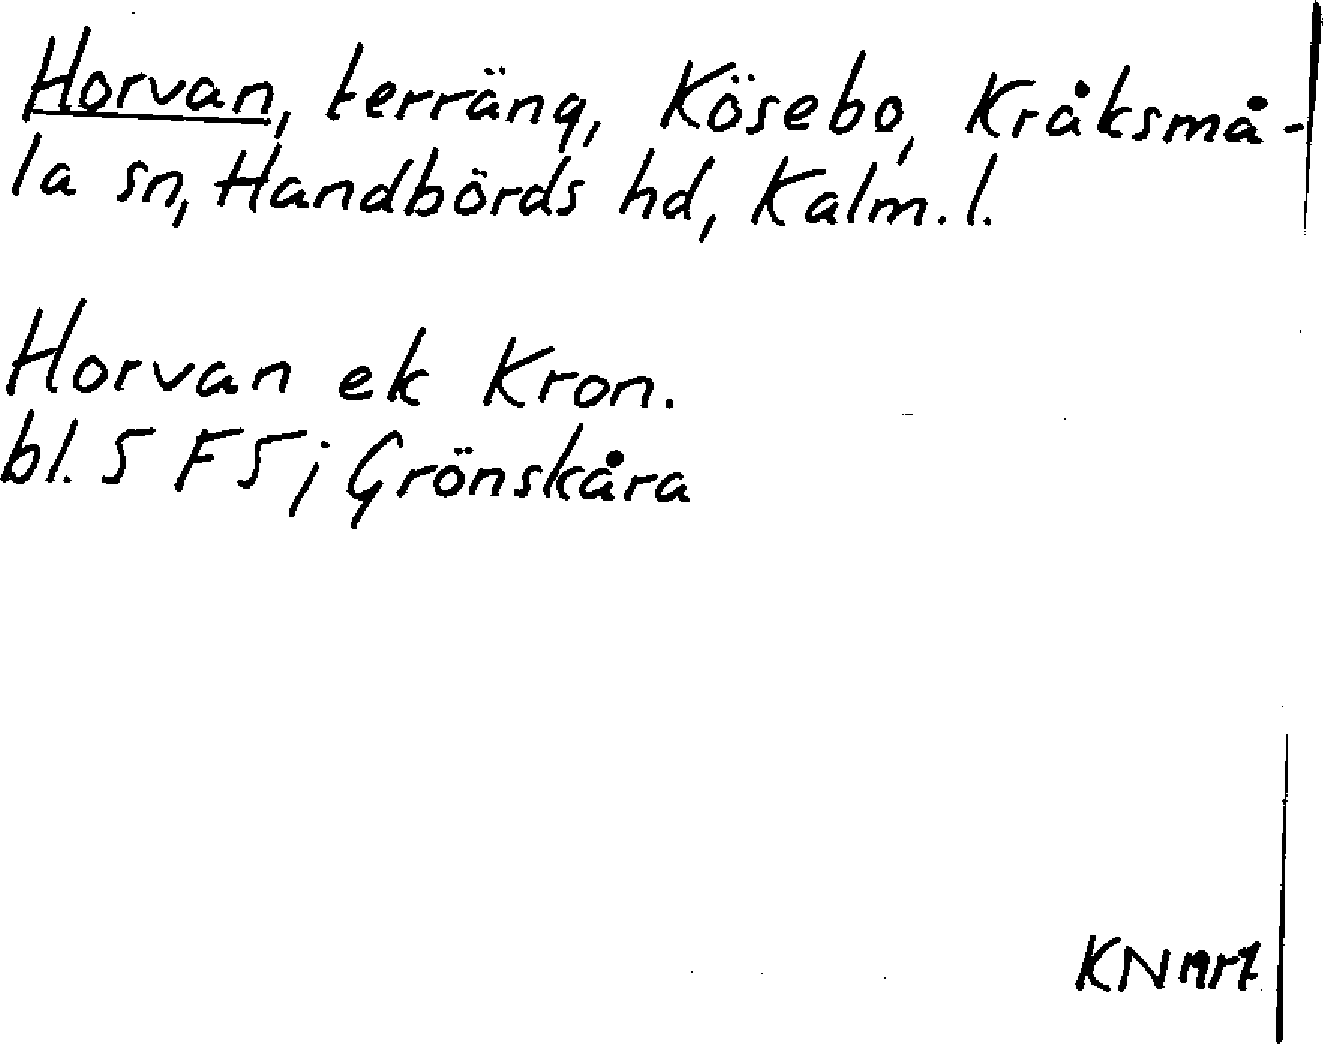 Horvan, terräng, Kösebo, Kråksmå-
la sn, Handbörds hd, Kalm. l.
Horvan ek Kron.
bl. 5 F 5 j Grönskåra
KN